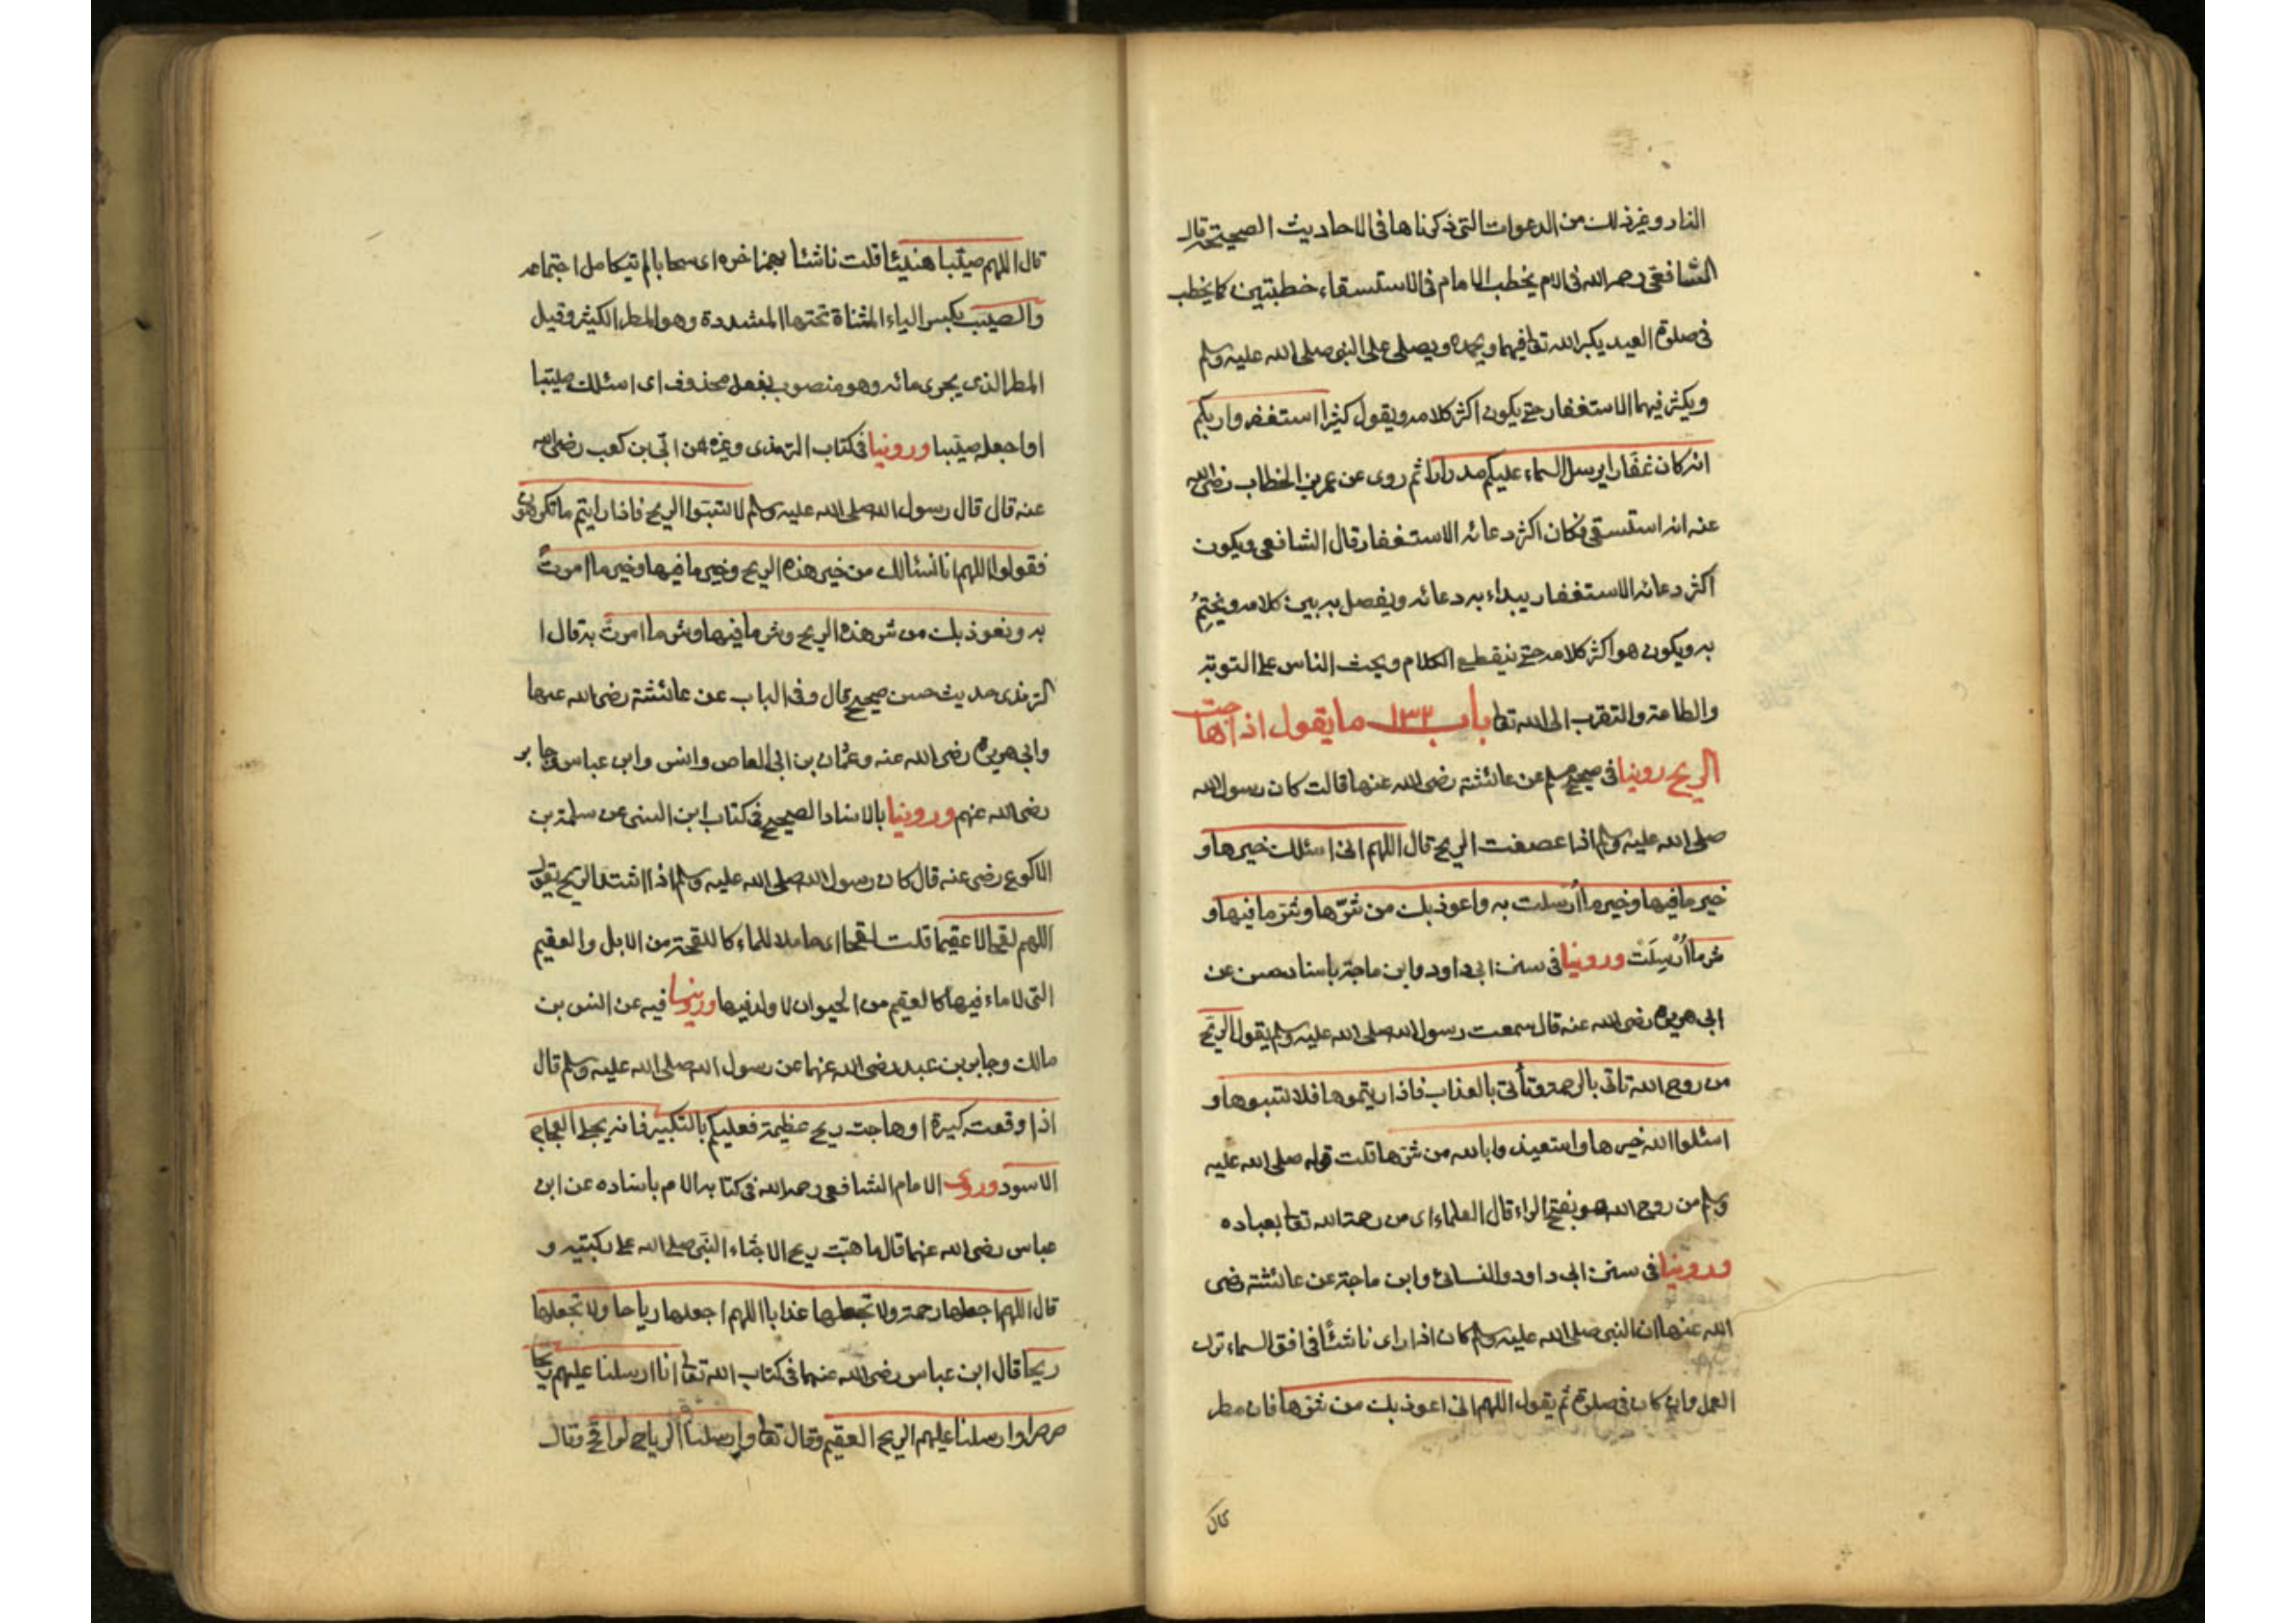 النار وغير ذلك من الدعوات التى ذكرناها فى الاحاديث الصحيحة قال
الشافعى رحمه الله فى الام يخطب الامام فى الاستسقاء خطبتين كما يخطب
فى صلوة العيد يكبر الله تعا فيهما ويحمده ويصلى على النبى صلى الله عليه وسلم
ويكثر فيهما الاستغفار حتى يكون اكثر كلامه ويقول كثيرا استغفروا ربكم
انه كان غفارا يرسل السماء عليكم مدرارا ثم روى عن عمر بن الخطاب رضى الله
عنه انه استسقى فكان اكثر دعائه الاستغفار قال الشافعى ويكون
اكثر دعائه الاستغفار يبداء به دعائه ويفصل به بين كلامه ويختِمُ
به ويكون هو اكثر كلامه حتى ينقطع الكلام ويحث الناس على التوبة
والطاعة والتقرب الى الله تعا باب ١٣٢ ما يقول اذا هاجت
الريح روينا فى صحيح مسلم عن عائشة رضى الله عنها قالت كان رسول الله
صلى الله عليه وسلم اذا عصفت الريح قال اللهم انى اسئلك خيرها و
خير ما فيها وخير ما اُرسلت به واعوذ بك من شرّها وشر ما فيها و
شر ما اُرْسِلَتْ وروينا فى سنن ابى داود وابن ماجة باسناد حسن عن
ابى هريرة رضى الله عنه قال سمعت رسول الله صلى الله عليه وسلم يقول الريح
من روح الله تاتى بالرحمة وتأتى بالعذاب فاذا رايتموها فلا تسبوها و
اسئلوا الله خيرها واستعيذوا بالله من شرها قلت قوله صلى الله عليه
وسلم من روح الله هو بفتح الراء قال العلماء اى من رحمة الله تعا بعباده
وروينا فى سنن ابى داود والنسائى وابن ماجة عن عائشة رضى
الله عنها ان النبى صلى الله عليه وسلم كان اذا راى ناشئًا فى افق السماء ترك
العمل وان كان فى صلوة ثم يقول اللهم انى اعوذ بك من شرها فان مطر
قال
قال اللهم صيّبا هنيئا قلت ناشئا بهمز اخره اى سحابا لم يتكامل اجتماعه
والصيب بكسر الياء المثناة تحتها المشددة وهو المطر الكثير وقيل
المطر الذى يجرى مائه وهو منصوب بفعل محذوف اى اسئلك صيّبا
او اجعله صيّبا وروينا فى كتاب الترمذى وغيره عن ابىّ بن كعب رضى الله
عنه قال قال رسول الله صلى الله عليه وسلم لا تسبّوا الريح فاذا رايتم ما تكرهون
فقولوا اللهم انا نسئالك من خير هذه الريح وخير ما فيها وخير ما امرتْ
به ونعوذ بك من شر هذه الريح وشر ما فيها وشر ما امرتْ به قال ا
لترمذى حديث حسن صحيح قال وفى الباب عن عائشة رضى الله عنها
وابى هريرة رضى الله عنه وعثمان بن ابى العاص وانس وابن عباس وجابر
رضى الله عنهم وروينا بالاسناد الصحيح فى كتاب ابن السنى عن سلمة بن
الاكوع رضى عنه قال كان رسول الله صلى الله عليه وسلم اذا اشتد الريح يقول
اللهم لقحا لا عقيما قلت لقحا اى حاملا للماء كاللقحة من الابل والعقيم
التى لا ماء فيها كالعقيم من الحيوان لا ولد فيها وروينا فيه عن انس بن
مالك وجابر بن عبد رضى الله عنهما عن رسول الله صلى الله عليه وسلم قال
اذا وقعت كبيرة او هاجت ريح عظيمة فعليكم بالتكبير فانه يجلى العجاج
الاسود وروى الامام الشافعى رحمه الله فى كتابه الام باسناده عن ابن
عباس رضى الله عنهما قال ما هبّت ريح الا جثاء النبّى صلى الله على ركبتيه و
قال اللهم اجعلها رحمة ولا تجعلها عذابا اللهم اجعلها رياحا ولا تجعلها
ريحا قال ابن عباس رضى الله عنهما فى كتاب الله تعا انا ارسلنا عليهم ريحا
صرصرا وارسلنا عليهم الريح العقيم وقال تعا وارسلنا الرياح لواقح وقال